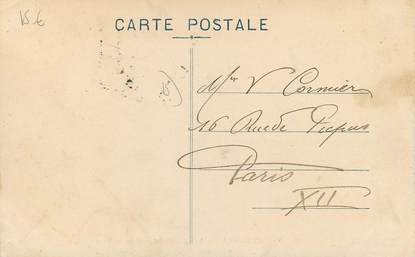 15 €
CARTE POSTALE
Mr V Cormier
16 Rue de Picpus
Paris
XII